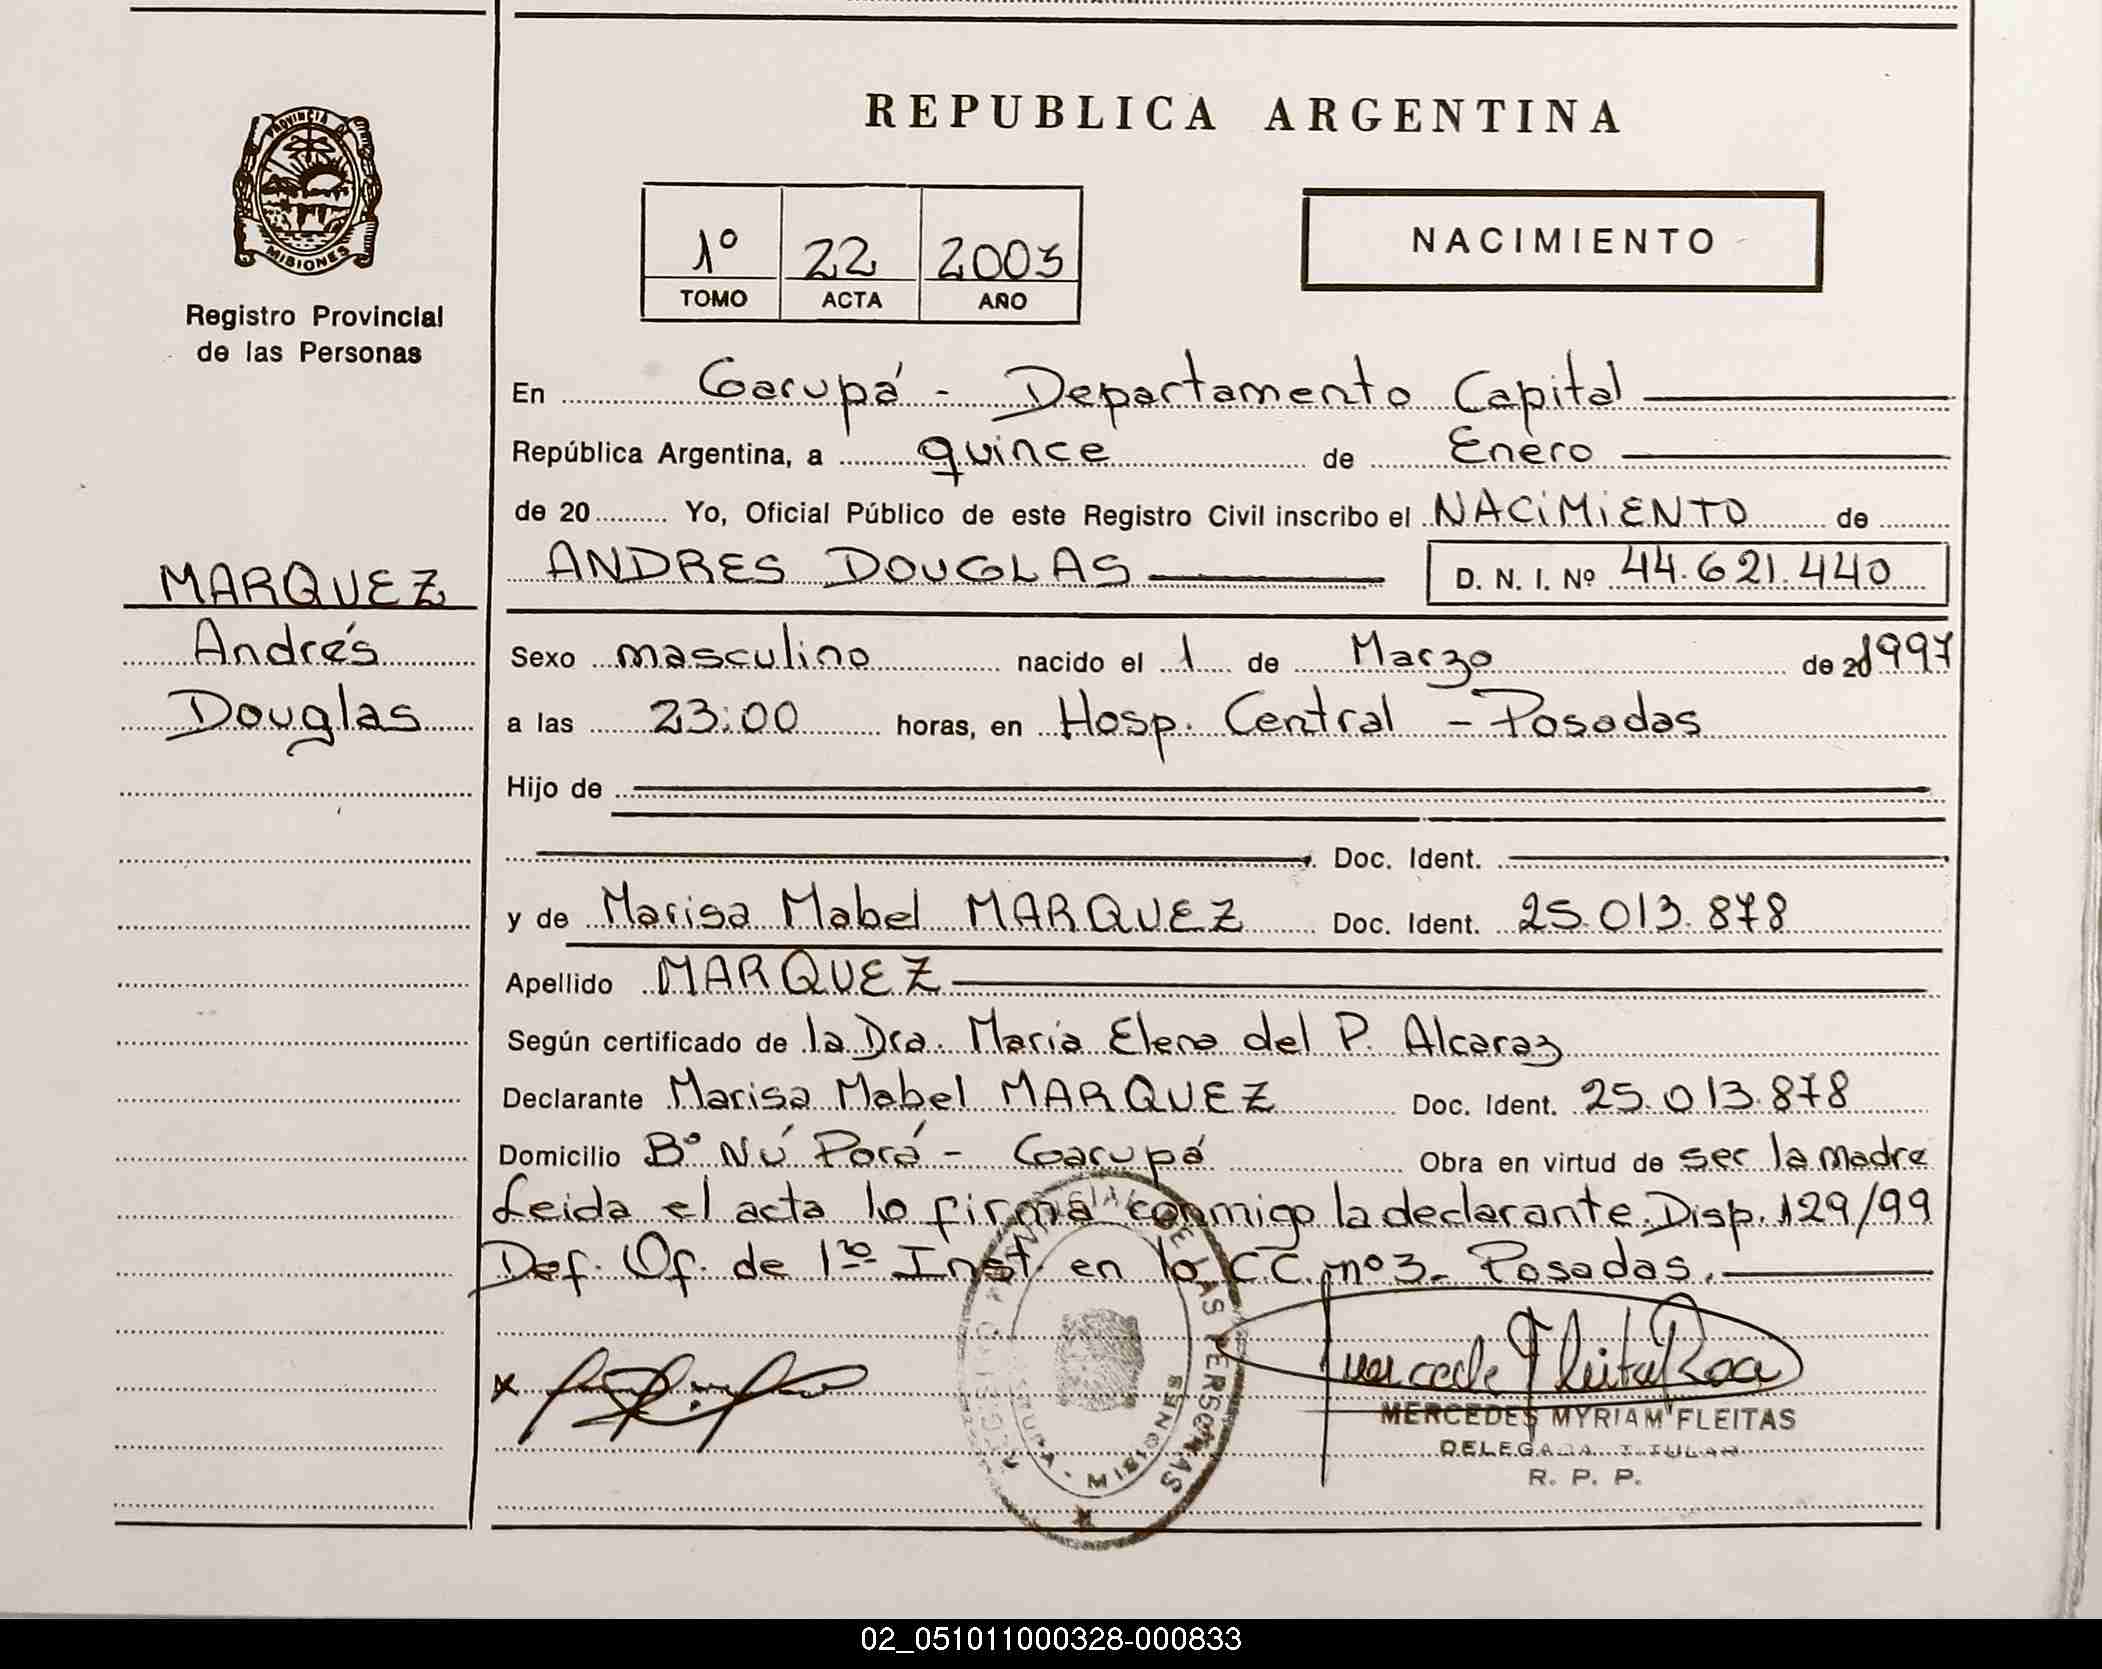 REPUBLICA ARGENTINA
PROVINCIA DE
MISIONES
Registro Provincial
de las Personas
1º 22 2003
TOMO ACTA AÑO
NACIMIENTO
En Garupá - Departamento Capital
República Argentina, a quince de Enero
de 20 Yo, Oficial Público de este Registro Civil inscribo el NACIMIENTO de
ANDRES DOUGLAS D. N. I. Nº 44.621.440
MARQUEZ
Andrés
Douglas
Sexo masculino nacido el 1 de Marzo de 1997
a las 23:00 horas, en Hosp. Central - Posadas
Hijo de
Doc. Ident.
y de Marisa Mabel MARQUEZ Doc. Ident. 25.013.878
Apellido MARQUEZ
Según certificado de la Dra. María Elena del P. Alcaraz
Declarante Marisa Mabel MARQUEZ Doc. Ident. 25.013.878
Domicilio Bº Ñú Porá - Garupá Obra en virtud de ser la madre
Leida el acta lo firma conmigo la declarante. Disp. 129/99
Def. Of. de 1ra Inst. en lo C.C. nº 3 - Posadas.
REGISTRO PROVINCIAL DE LAS PERSONAS
MISIONES
MERCEDES MYRIAM FLEITAS
DELEGADA TITULAR
R. P. P.
02_051011000328-000833